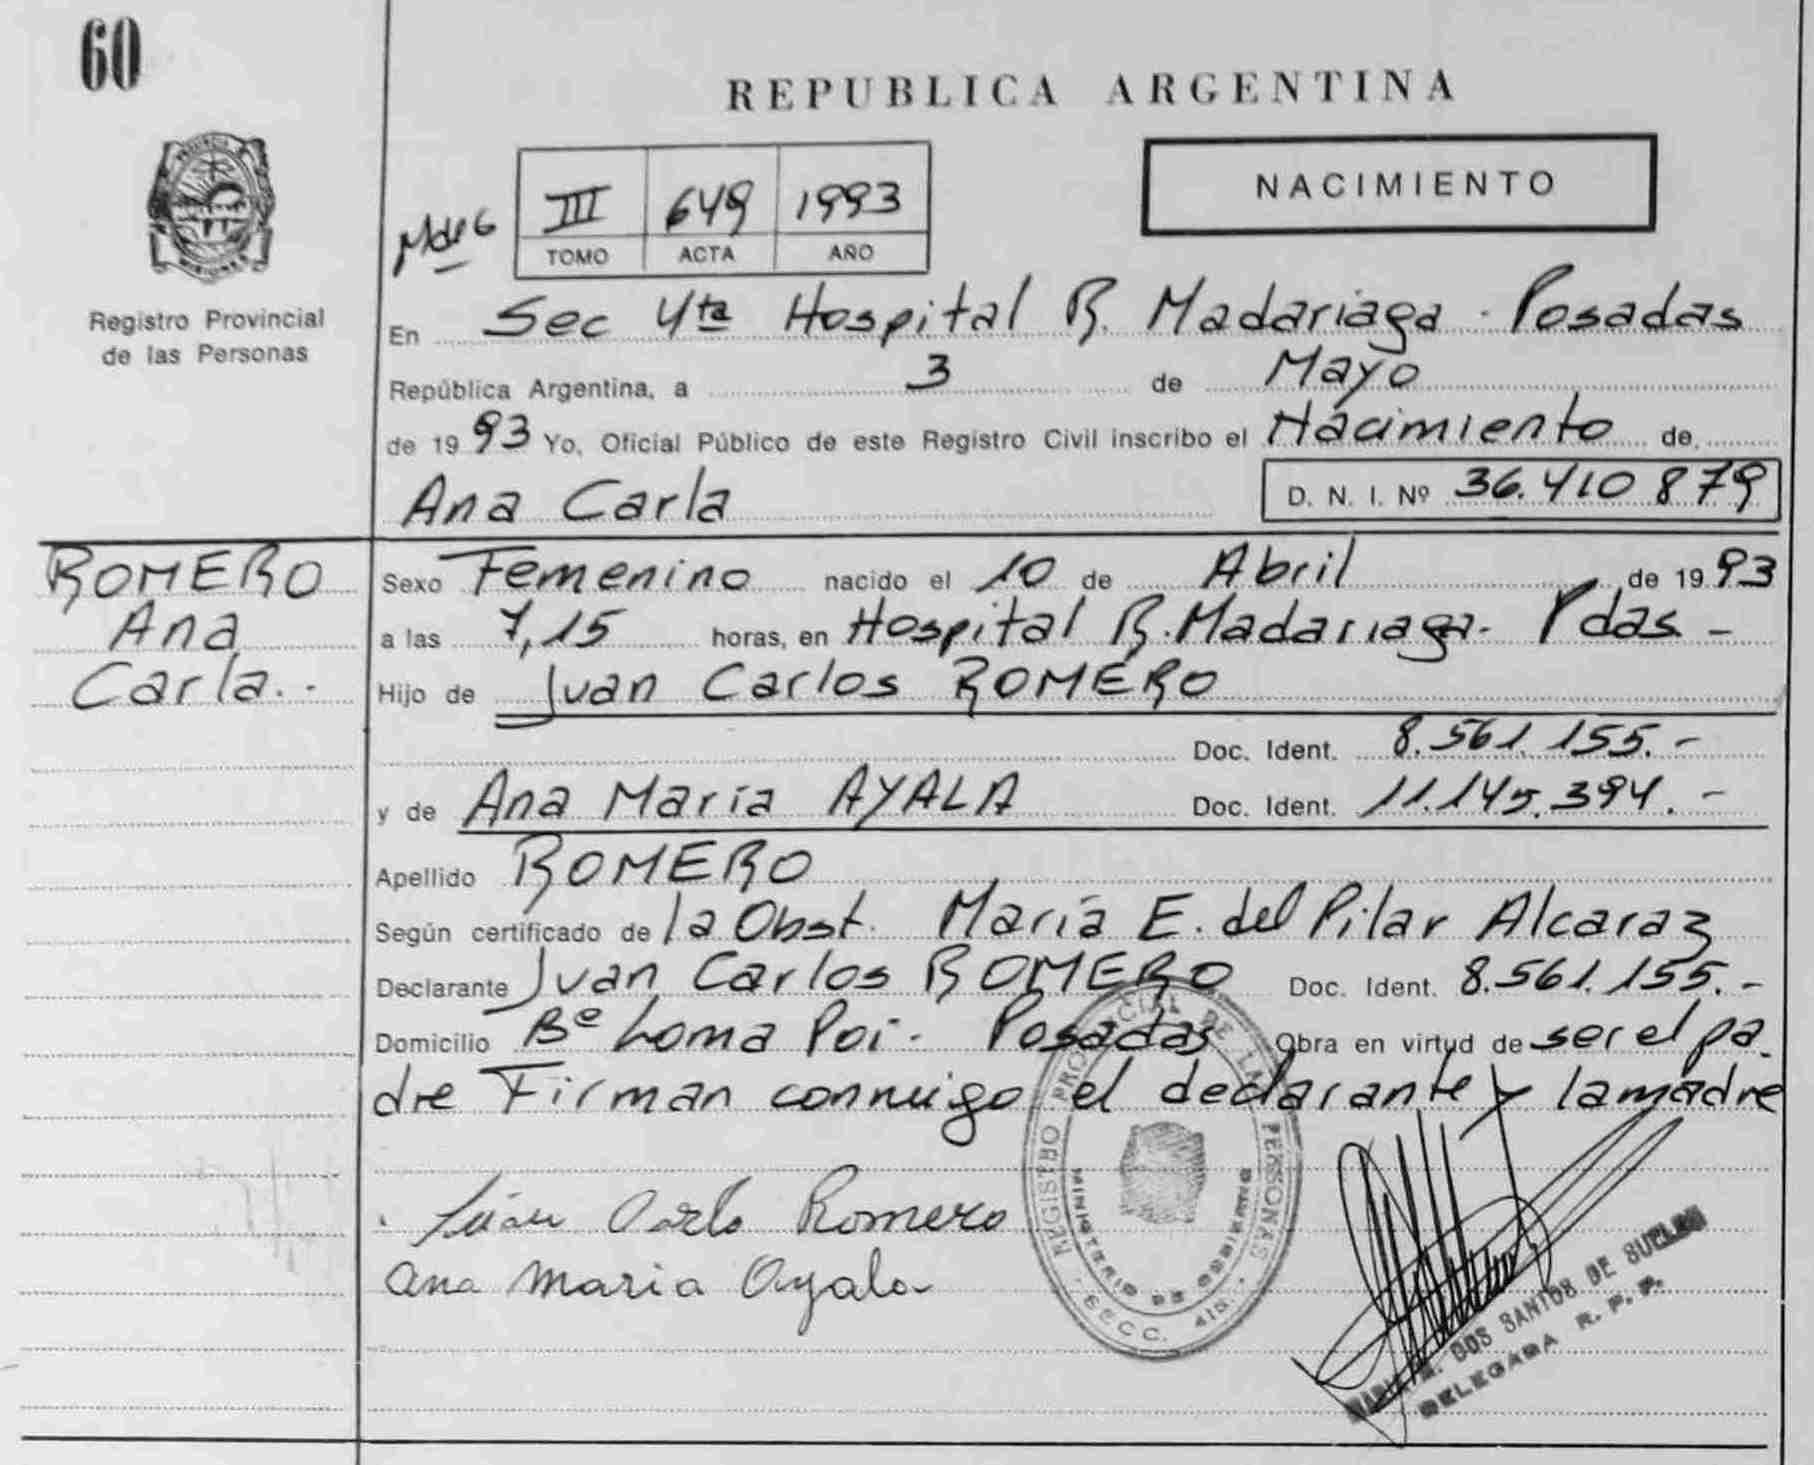 60
REPUBLICA ARGENTINA
NACIMIENTO
III 649 1993
TOMO ACTA AÑO
PROVINCIA
MISIONES
Registro Provincial
de las Personas
En Sec 4ta Hospital R. Madariaga - Posadas
República Argentina, a 3 de Mayo
de 1993 Yo, Oficial Público de este Registro Civil inscribo el Nacimiento de
Ana Carla D. N. I. Nº 36.410 879
ROMERO
Ana
Carla.-
Sexo Femenino nacido el 10 de Abril de 1993
a las 7,15 horas, en Hospital R. Madariaga - Pdas -
Hijo de Juan Carlos ROMERO
Doc. Ident. 8.561.155.-
y de Ana Maria AYALA Doc. Ident. 11.145.394.-
Apellido ROMERO
Según certificado de la Obst. María E. del Pilar Alcaraz
Declarante Juan Carlos ROMERO Doc. Ident. 8.561.155.-
Domicilio Bº Loma Poi - Posadas Obra en virtud de ser el pa-
dre Firman conmigo el declarante y la madre
REGISTRO PROVINCIAL DE LAS PERSONAS
MINISTERIO DE GOBIERNO
SECC. 4ta
Juan Carlo Romero
Ana Maria Ayala
DOS SANTOS DE
DELEGADA R. P. P.